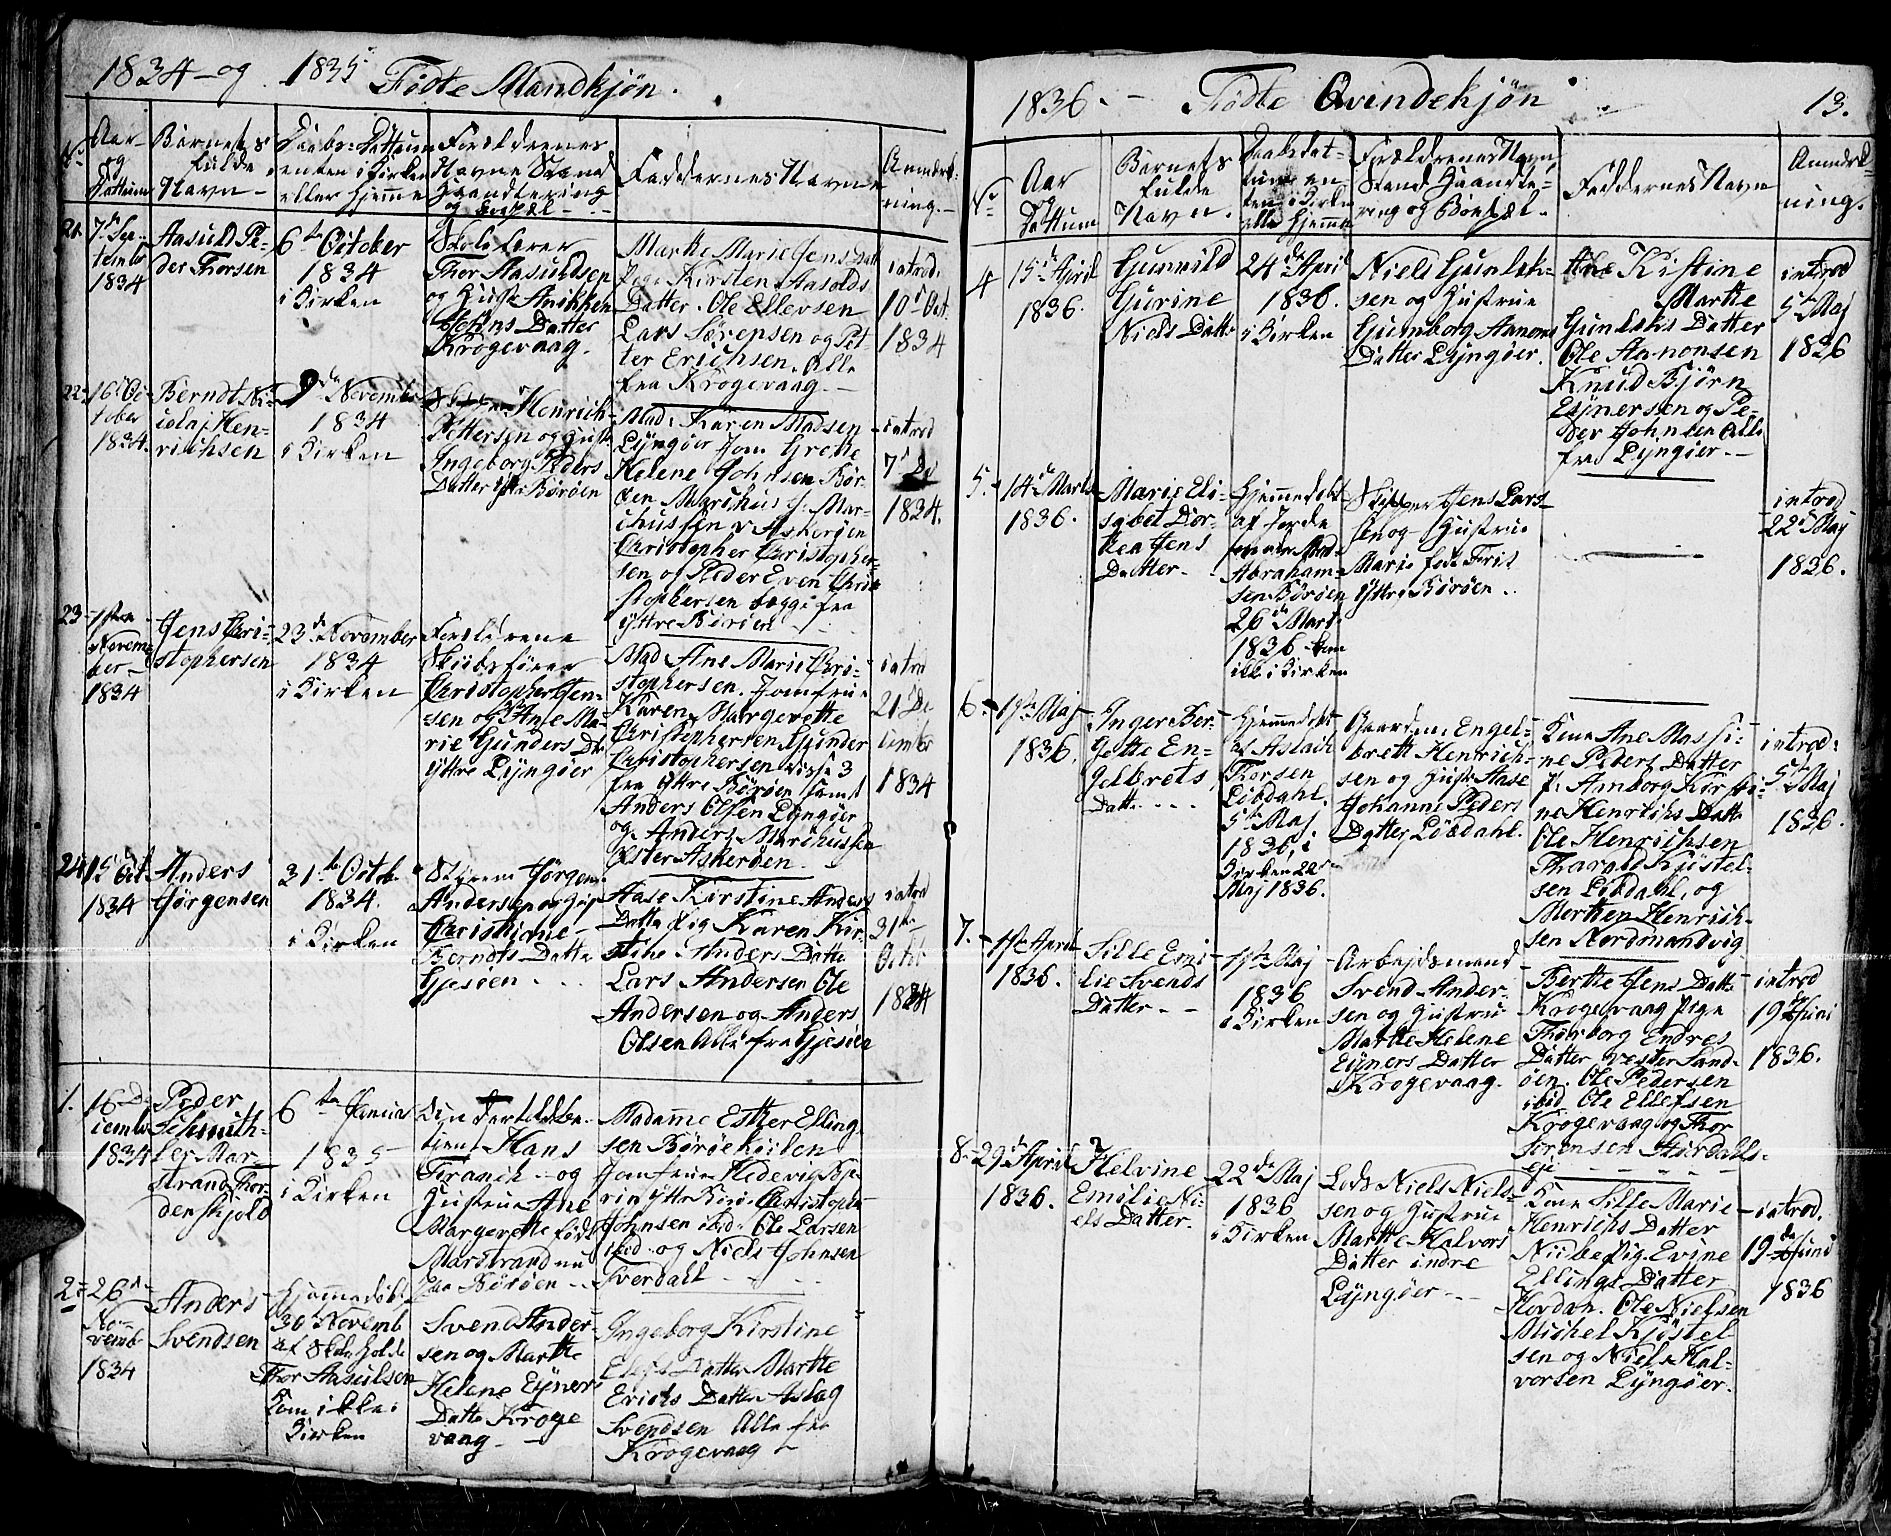 1834 og 1835 Fødte Mandkjøn.
No
Aar
og
Dattum
Barnets
fulde
Navn
Daabs-Dattum
enten i Kirken
eller Hjemme
Forældrenes
Navne Stand
Haandtering
og
Faddernes Navne
Anmerk-
ning.
21.
7de Sep-
tember
1834
Aasuld Pe-
der Thorsen
6te October
1834
i Kirken
Skolelærer
Thor Aasuldsen
og Hust: Anikken
Jens Datter
Krogevaag.
Marthe Marie Jens Datt
Pige Kirsten Aasolds
Datter. Ole Ellevsen
Lars Sørensen og Pet-
ter Erichsen. Alle
fra Krogevaag.
introd:
10de Oct.
1834
22.
16de Oc-
tober
1834.
Berndt Ni-
colaj Hen-
richsen
9de Novemb
1834
i Kirken
Henrich
Pettersen og Hust:
Ingeborg Peders
Datter Ytre Børøen
Mad: Karen Madsen
Lyngøer Jom Grethe
Helene Johnsen Bør-
øen Marchus J: Mar-
chussen v Askerøen
Christopher Christopher-
sen og Peder Even Chri-
stophersen begge fra
Yttre Børøen
introd
7de
1834.
23
1ste
Novem-
ber
1834
Jens Chri-
stophersen
23de November
1834
i Kirken
Forældrene
Skibsfører
Christopher Jen-
sen og Ane Ma-
rie Gunders D
Yttre Lyngøer
Mad Ane Marie Chri-
stophersen. Jomfrue
Karen Margerethe
Christophersen Gunder
Christophersen disse 3
fra Yttre Børøen samt
Anders Olsen Lyngøer
og Anders Marchussen
Øster Askerøen.
introd
21de De
cember
1834
24
15de Oct
1834
Anders
Jørgensen
31te Octob
1834.
i Kirken
Jørgen
Andersen og Hust
Christiane
Berndts Datter
Gjesøen
Aase Kirstine Anders
Datter Pig Karen Kir-
stine Anders Datter
Lars Andersen Ole
Andersen og Anders
Olsen Alle fra Gjesøen
introd
31te
Octob
1834
1.
16 De
cember
1834
Peder
Schmith-
ler Mar-
strand Thor-
denskjold
6te Januar
1835
i Kirken
Hans
Franck og
Hustrue Ane
Margerethe født
Marstrand nu
fra Børøen
Madamme Esther Elling-
sen Børøekilen
Jomfrue Hedevig
Yttre Børø Christopher
Johnsen ibid: Ole Larsen
ibid: og Niels Johnsen
Sverdalt
2
26de
No-
vemb
1834
Anders
Svendsen
Hjemmedøbt
30 Novemb
af Skoleholde
Thor Aasulsen
Kom ikke i
Kirken
Svend Ander-
sen og Marthe
Helene Eyners
Datter Kroge
vaag
Ingeborg Kirstine
Datter Marthe
Erichs Datter Aslag
Svendsen Alle fra
Krogevaag
1836. Fødte Qvindekjøn
13.
No
Aar
og
Dattum
Barnets
fulde
Navn.
Daabsdat-
tum en
ten i Kirke
eller Hjemme
Forældrenes Navn
Stand Haandte-
ring og Bopæl.
Faddernes Navn
Anmerk-
ning.
4
15de April
1836.
Gunvild
Gurine
Niels Datter
24de April
1836.
i Kirken
Niels Gunlek-
sen og Hustrue
Gumborg Aanons
Datter Lyngøer.
Kistine
Marthe
Gunleks Datter
Ole Aanonsen
Knud Bjørn
Eynersen og Pe-
der Johnsen Alle
fra Lyngøer.
introd
5te Maj
1836
5.
14de Marts
1836.
Marie Eli-
sabet Dor-
thea Jens
Datter.
Hjemmedøbt
af Jorde
moder Mad
Abraham-
sen Børøen
26de Marts
1836 kom
ikke i Kirken
Skipper Jens Lars-
sen og Hustrue
Marie fød Friis
Yttre Børøen.
introd
22de Maj
1836.
6.
1ste Maj
1836.
Inger Ber-
gette En-
gelbrets
Datter
Hjemmedøbt
af Aslach
Thorsen
Løvdahl.
5te Maj
1836, i
Kirken 22de
Maj 1836.
Gaardm: Engel-
brett Henrich-
sen og Hust: Aase
Johanne Peders
Datter Løvdahl.
Kone Ane Massi-
ne Peders Datter
P: Amborg Kirsti-
ne Henrichs Datt
Ole Henrichsen
Thargel Kjøstel-
sen Løvdahl, og
Morthen Henrich-
sen Nordmandvig
introd:
5te Maj
1836.
7.
1ste April
1836.
Sille Emi
lie Svends
Datter
1ste Maj
1836
i Kirken
Arbejdsmand
Svend Ander-
sen og Hustrue
Marthe Helene
Eyners Datter
Krogevaag.
Berthe Jens Datt
Krogevaag Pige
Thorborg Endres
Datter vester Sand-
øen. Ole Pedersen
ibid Ole Ellefsen
Krogevaag og Thor
Sorensen Hurdalls-
ejd
introd
19de Juni
1836.
8.
29de April
1836.
Helvine
Emilie Ni-
els Datter.
22de Maj
1836
i Kirken
Lods Niels Niels-
sen og Hustrue
Marthe Halvors
Datter indre
Lyngøer
Kone Sille Marie
Henrichs Datter
Pig: Evine
Ellings Datter
Hovdan. Ole Nielsen
Michel Kjøstel
sen og Niels Hal-
vorsen Lyngøer.
introd.
19de Juni
1836